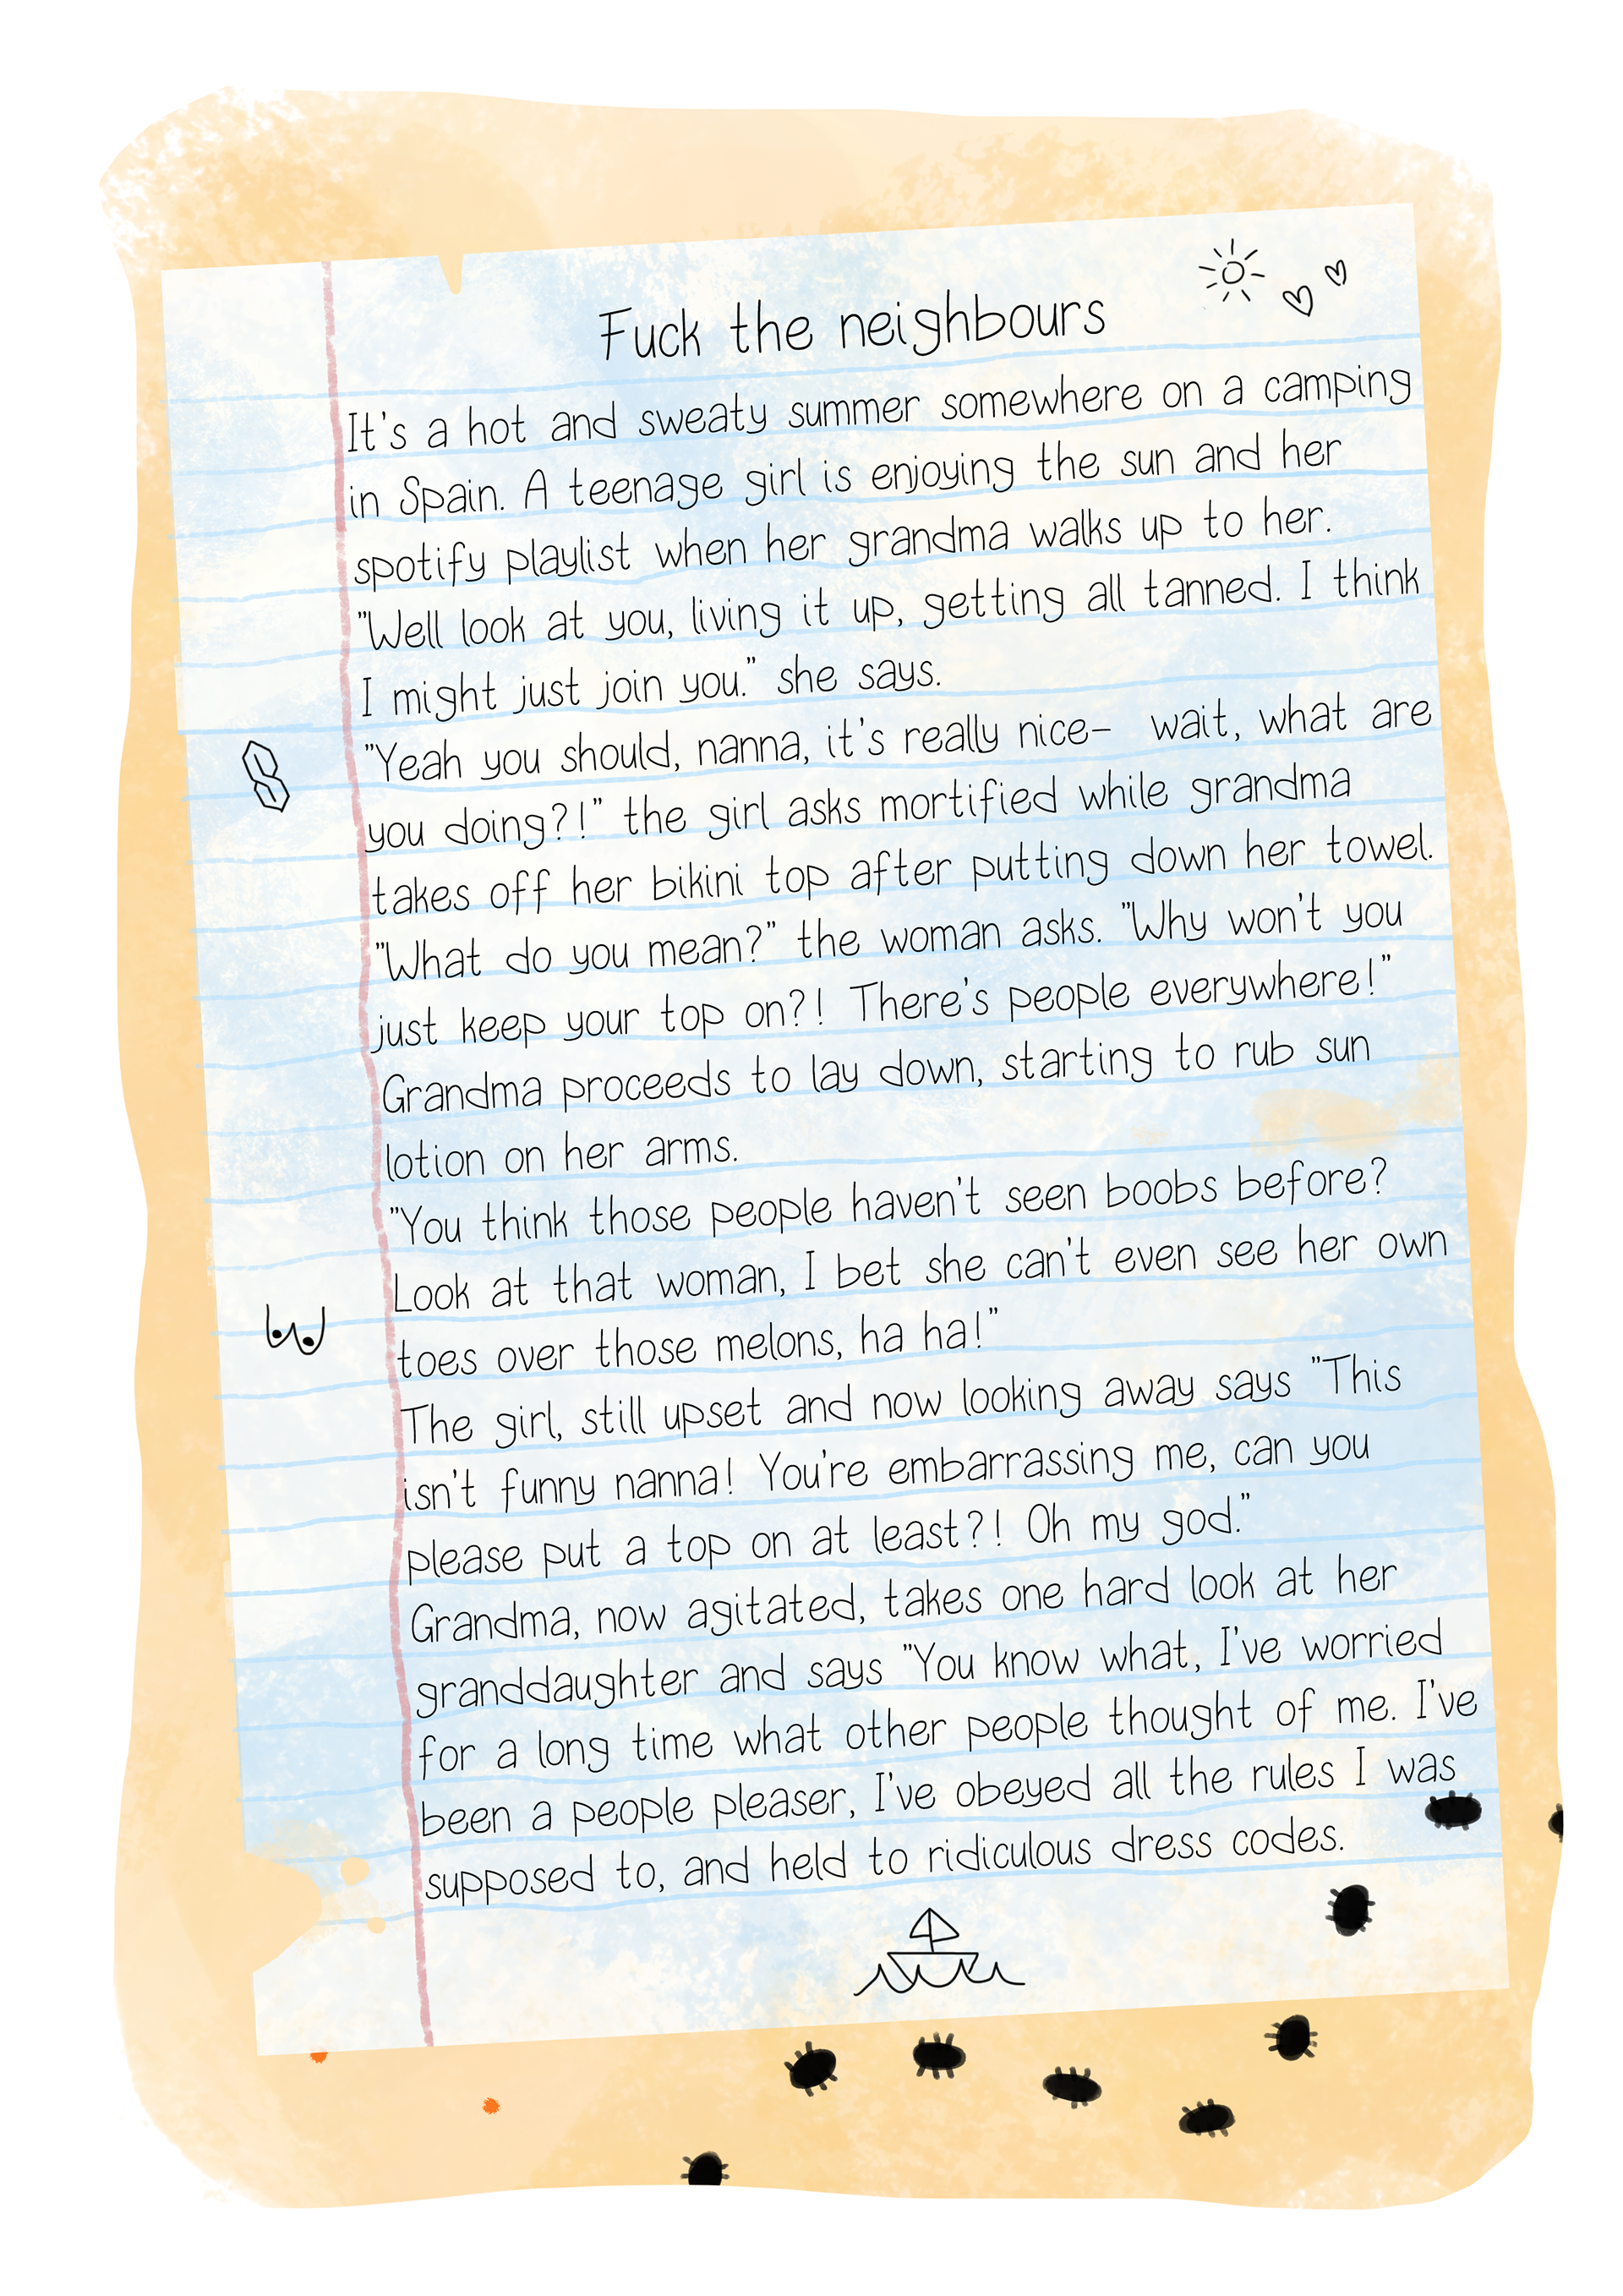 Fuck the neighbours
It's a hot and sweaty summer somewhere on a camping
in Spain. A teenage girl is enjoying the sun and her
spotify playlist when her grandma walks up to her.
"Well look at you, living it up, getting all tanned. I think
I might just join you." she says.
"Yeah you should, nanna, it's really nice- wait, what are
you doing?!" the girl asks mortified while grandma
takes off her bikini top after putting down her towel.
"What do you mean?" the woman asks. "Why won't you
just keep your top on?! There's people everywhere!"
Grandma proceeds to lay down, starting to rub sun
lotion on her arms.
"You think those people haven't seen boobs before?
Look at that woman, I bet she can't even see her own
toes over those melons, ha ha!"
The girl, still upset and now looking away says "This
isn't funny nanna! You're embarrassing me, can you
please put a top on at least?! Oh my god."
Grandma, now agitated, takes one hard look at her
granddaughter and says "You know what, I've worried
for a long time what other people thought of me. I've
been a people pleaser, I've obeyed all the rules I was
supposed to, and held to ridiculous dress codes.